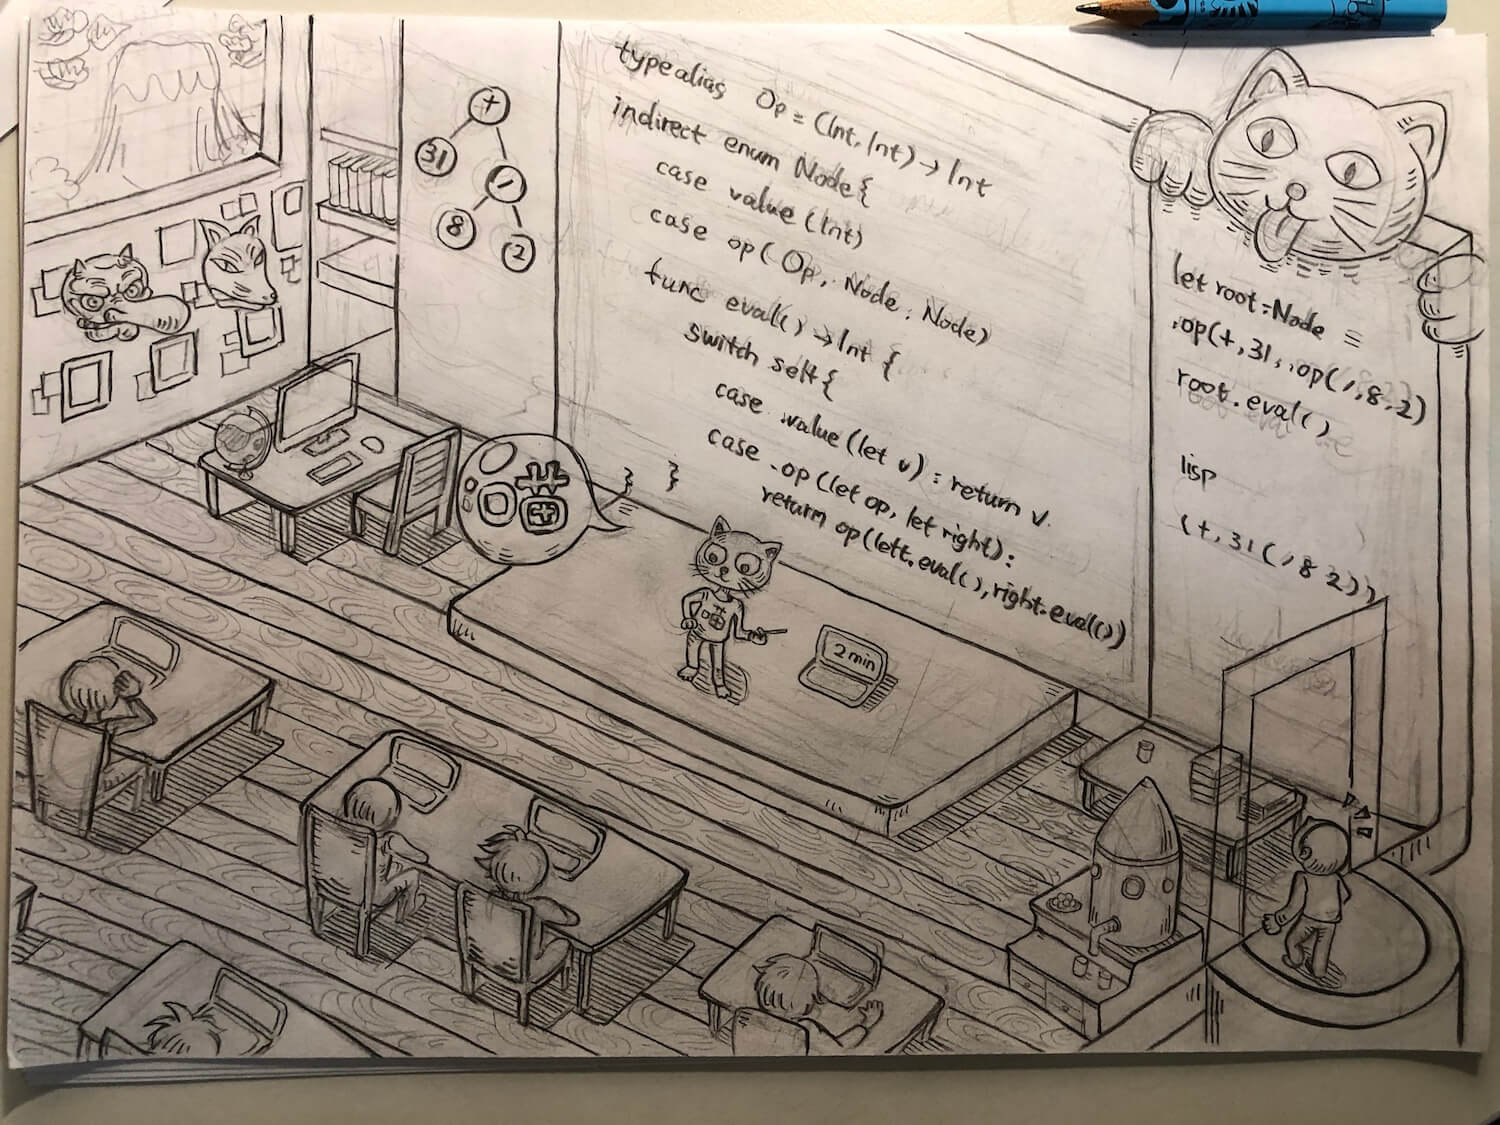 +
31
/
8
2
typealias Op = (Int, Int) -> Int
indirect enum Node {
case value (Int)
case op( Op, Node, Node)
func eval() -> Int {
switch self {
case .value (let v) : return v.
case .op (let op, let right):
return op(left.eval(), right.eval())
let root:Node =
.op(+,31, .op(/,8,2)
root.eval()
lisp
(+,31(/82))
2 min